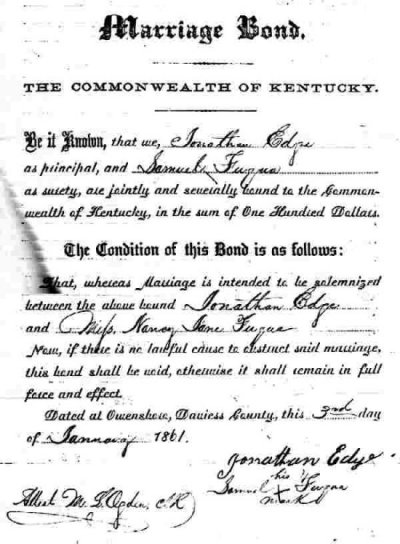 Marriage Bond.
THE COMMONWEALTH OF KENTUCKY.
Be it Known, that we, Jonathan Edge
as principal, and Samuel Fuqua
as surety, are jointly and severally bound to the Common-
wealth of Kentucky, in the sum of One Hundred Dollars.
The Condition of this Bond is as follows:
That, whereas Marriage is intended to be solemnized
between the above bound Jonathan Edge
and Miss Nancy Jane Fuqua
Now, if there is no lawful cause to obstruct said marriage,
this bond shall be void, otherwise it shall remain in full
force and effect.
Dated at Owensboro, Daviess County, this 3rd day
of January 1861.
Jonathan Edge
his
Samuel X Fuqua
mark
Albert M. Ogden,